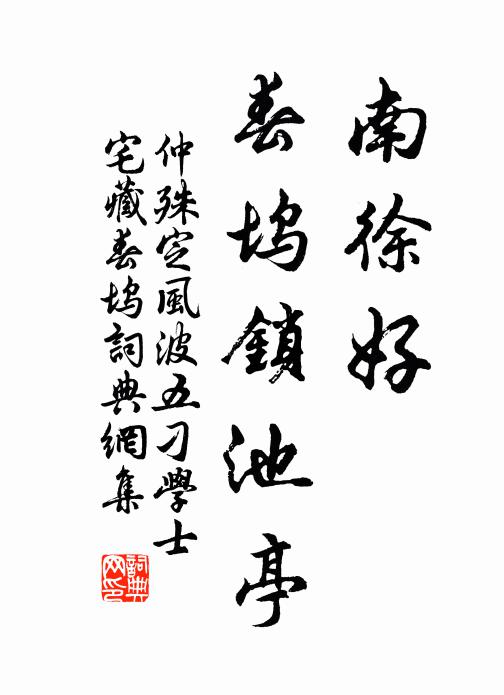 南徐好
春塢鎖池亭
仲殊定風波五刁學士
宅藏春塢詞典網集
詞典
网印